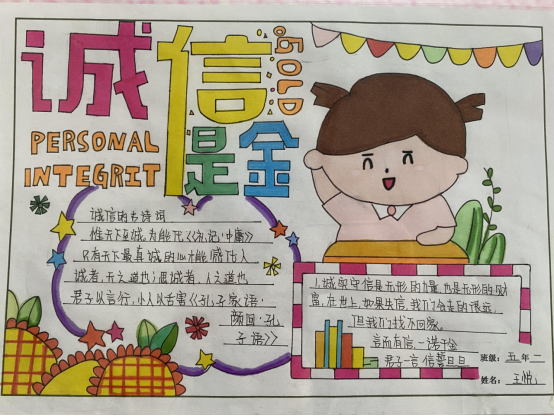 诚信
是金
GOLD
PERSONAL
INTEGRIT
诚信的古诗词
惟天下至诚,为能化《礼记·中庸》
只有天下最真诚的心才能感化人
诚者,天之道也;思诚者,人之道也
君子以言行,小人以舌言《孔子家语·
颜回·孔
子语》
1.诚实守信是无形的力量,也是无形的财
富,在世上,如果失信,我们会走的很远,
但我们找不回家。
言而有信,一诺千金
君子一言 信誓旦旦
班级:五年二
姓名:王悦